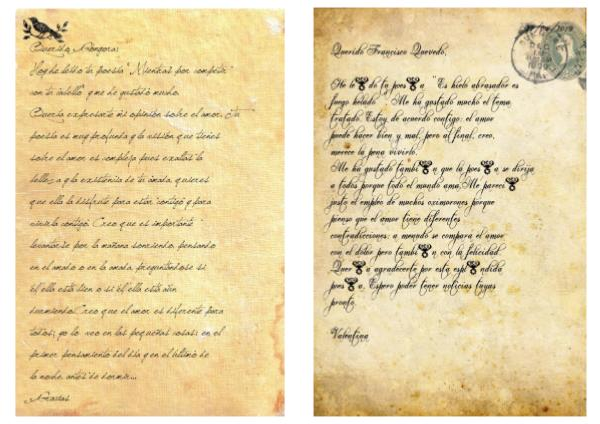 Querido Góngora:
Hoy he leído tu poesía "Mientras por competir
con tu cabello" y me ha gustado mucho.
Quería expresarte mi opinión sobre el amor. Tu
poesía es muy profunda y la visión que tienes
sobre el amor es compleja pues exaltas la
belleza y la existencia de tu amada, quieres
que ella la disfrute para estar contigo y para
vivirla contigo. Creo que es importante
levantarse por la mañana sonriendo, pensando
en el amado o en la amada, preguntándose si
él ella está bien o si él ella está aún
durmiendo. Creo que el amor es diferente para
todos; yo lo veo en las pequeñas cosas: en el
primer pensamiento del día y en el último de
la noche, antes de dormir...
Gracias
Querido Francisco Quevedo,
He le do tu poes a "Es hielo abrasador es
fuego helado". Me ha gustado mucho el tema
tratado. Estoy de acuerdo contigo: el amor
puede hacer bien y mal, pero al final, creo,
merece la pena vivirlo.
Me ha gustado tambi n que la poes a se dirija
a todos porque todo el mundo ama. Me pareci
justo el empleo de muchos oximorones porque
pienso que el amor tiene diferentes
contradicciones: a menudo se compara el amor
con el dolor pero tambi n con la felicidad.
Quer a agradecerte por esta espl ndida
poes a. Espero poder tener noticias tuyas
pronto.
Valentina